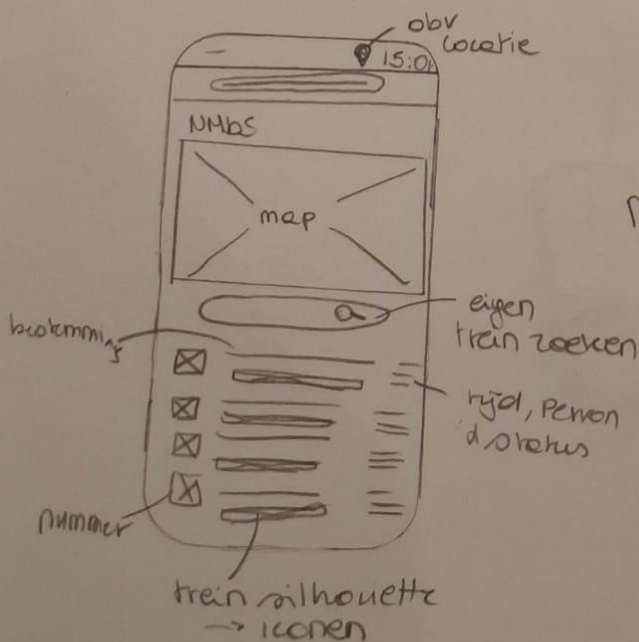 obv
locatie
15:0
NMbS
map
eigen
trein zoeken
bestemming
tijd, perron
& status
nummer
trein silhouette
→ iconen